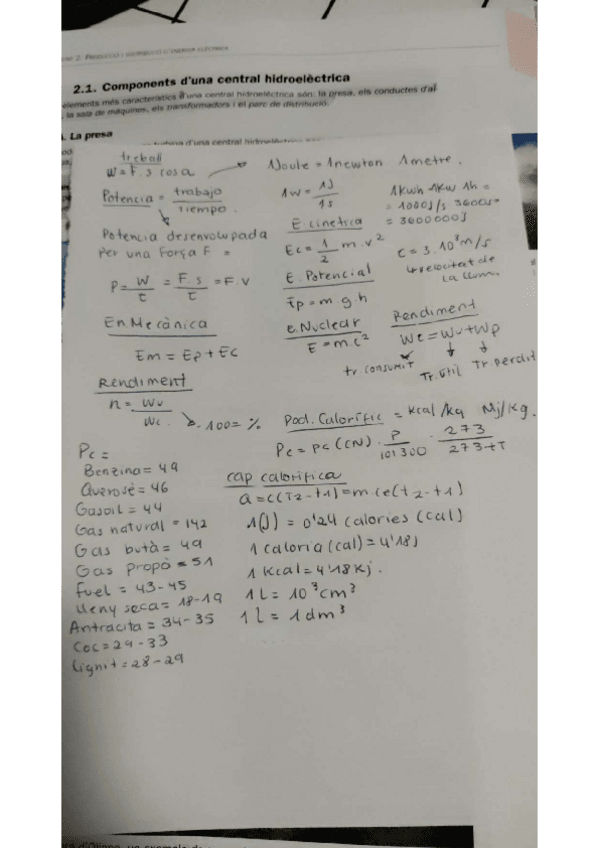 2. PRODUCCIÓ I DISTRIBUCIÓ D'ENERGIA ELÈCTRICA
2.1. Components d'una central hidroelèctrica
elements més característics d'una central hidroelèctrica són: la presa, els conductes d'ai
la sala de màquines, els transformadors i el parc de distribució.
. La presa
d'una central hidroelèctrica
treball
W = F. s cos a
1 Joule = 1 newton 1 metre.
Potencia = trabajo / Tiempo.
1w = 1J / 1s
1 kwh 1kw 1h =
= 1000J/s 3600s=
= 3600000J
Potencia desenvolupada
Per una força F =
P = W/t = F.s/t = F.V
E. cinetica
Ec = 1/2 m.v²
c = 3.10⁸ m/s
velocitat de
la llum.
E. Potencial
Ep = m.g.h
En Mecànica
Em = Ep + Ec
e. Nuclear
E = m.c²
Rendiment
Wc = Wu + Wp
tr consumit
Tr. útil
Tr. perdit
Rendiment
n = Wu / Wc . 100 = %
Pod. Calorífic = kcal/kg Mj/kg.
Pc = pc (CN) . P/101300 . 273/273+T
Pc =
Benzina = 49
Querosè = 46
Gasoil = 44
Gas natural = 142
Gas butà = 49
Gas Propà = 51
Fuel = 43-45
lleny seca = 18-19
Antracita = 34-35
Coc = 29-33
Lignit = 28-29
cap calorifica
a = c(T2-t1) = m ce(t2-t1)
1(J) = 0'24 calories (cal)
1 caloria (cal) = 4'18j
1 kcal = 4'18 kj.
1 L = 10³ cm³
1 L = 1 dm³